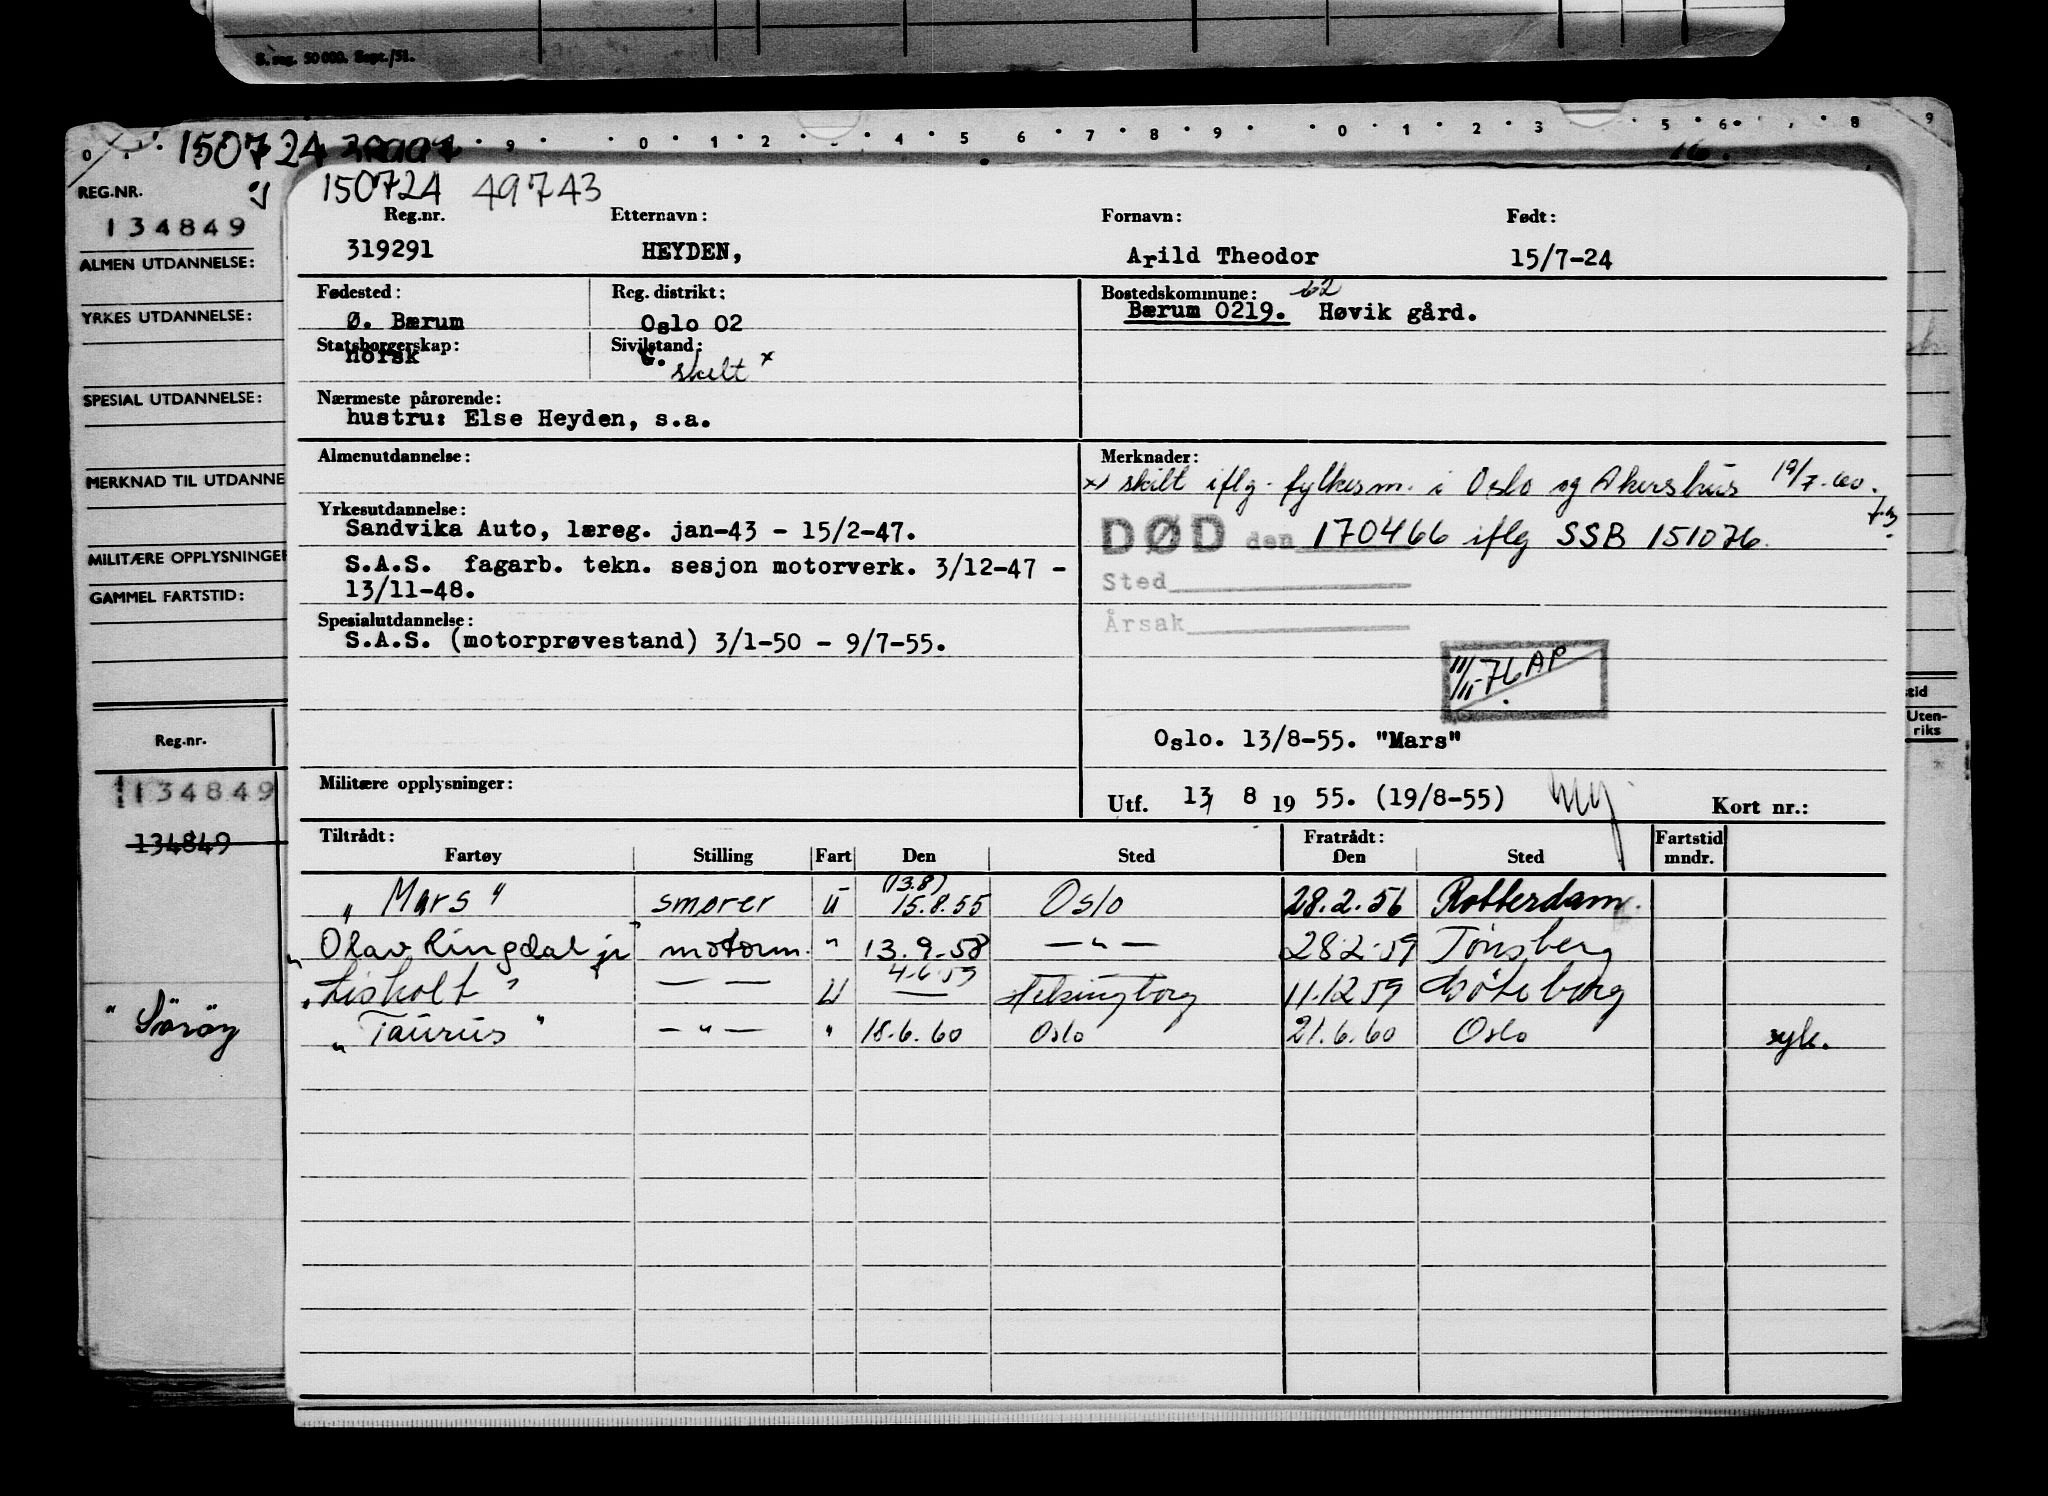 S. reg. 50 000. Sept./51.
0 9 0 1 2 4 5 6 7 8 9 0 1 2 3 5 6 8 9
150724
REG.NR.
134849
ALMEN UTDANNELSE:
YRKES UTDANNELSE:
SPESIAL UTDANNELSE:
MERKNAD TIL UTDANNE
MILITÆRE OPPLYSNINGER
GAMMEL FARTSTID:
Reg.nr.
134849
134849
" Sørøy
stid
Uten-
riks
150724 49743
Reg.nr. Etternavn: Fornavn: Født:
319291 HEYDEN, Arild Theodor 15/7-24
Fødested: Reg. distrikt: Bostedskommune: 62
Ø. Bærum Oslo 02 Bærum 0219. Høvik gård.
Statsborgerskap: Sivilstand:
norsk G. skilt x
Nærmeste pårørende:
hustru: Else Heyden, s.a.
Almenutdannelse: Merknader:
x) skilt iflg. fylkesm. i Oslo og Akershus 19/7-60.
Yrkesutdannelse:
Sandvika Auto, læreg. jan-43 - 15/2-47.
DØD den 170466 iflg SSB 151076.
S.A.S. fagarb. tekn. sesjon motorverk. 3/12-47 -
13/11-48.
Sted
Årsak
Spesialutdannelse:
S.A.S. (motorprøvestand) 3/1-50 - 9/7-55.
11/11-76 AP
Oslo. 13/8-55. "Mars"
Militære opplysninger:
Utf. 13 8 19 55. (19/8-55) Kort nr.:
Tiltrådt: Fratrådt: Fartstid
Fartøy Stilling Fart Den Sted Den Sted mndr.
(13.8)
"Mars" smører U 15.8.55 Oslo 28.2.56 Rotterdam.
"Olav Ringdal jr" motorm. " 13.9.58 — " — 28.2.59 Tønsberg
4.6.59
"Lisholt" — — U — Helsingborg 11.12.59 Gøteborg
"Taurus" — " — " 18.6.60 Oslo 21.6.60 Oslo syk.